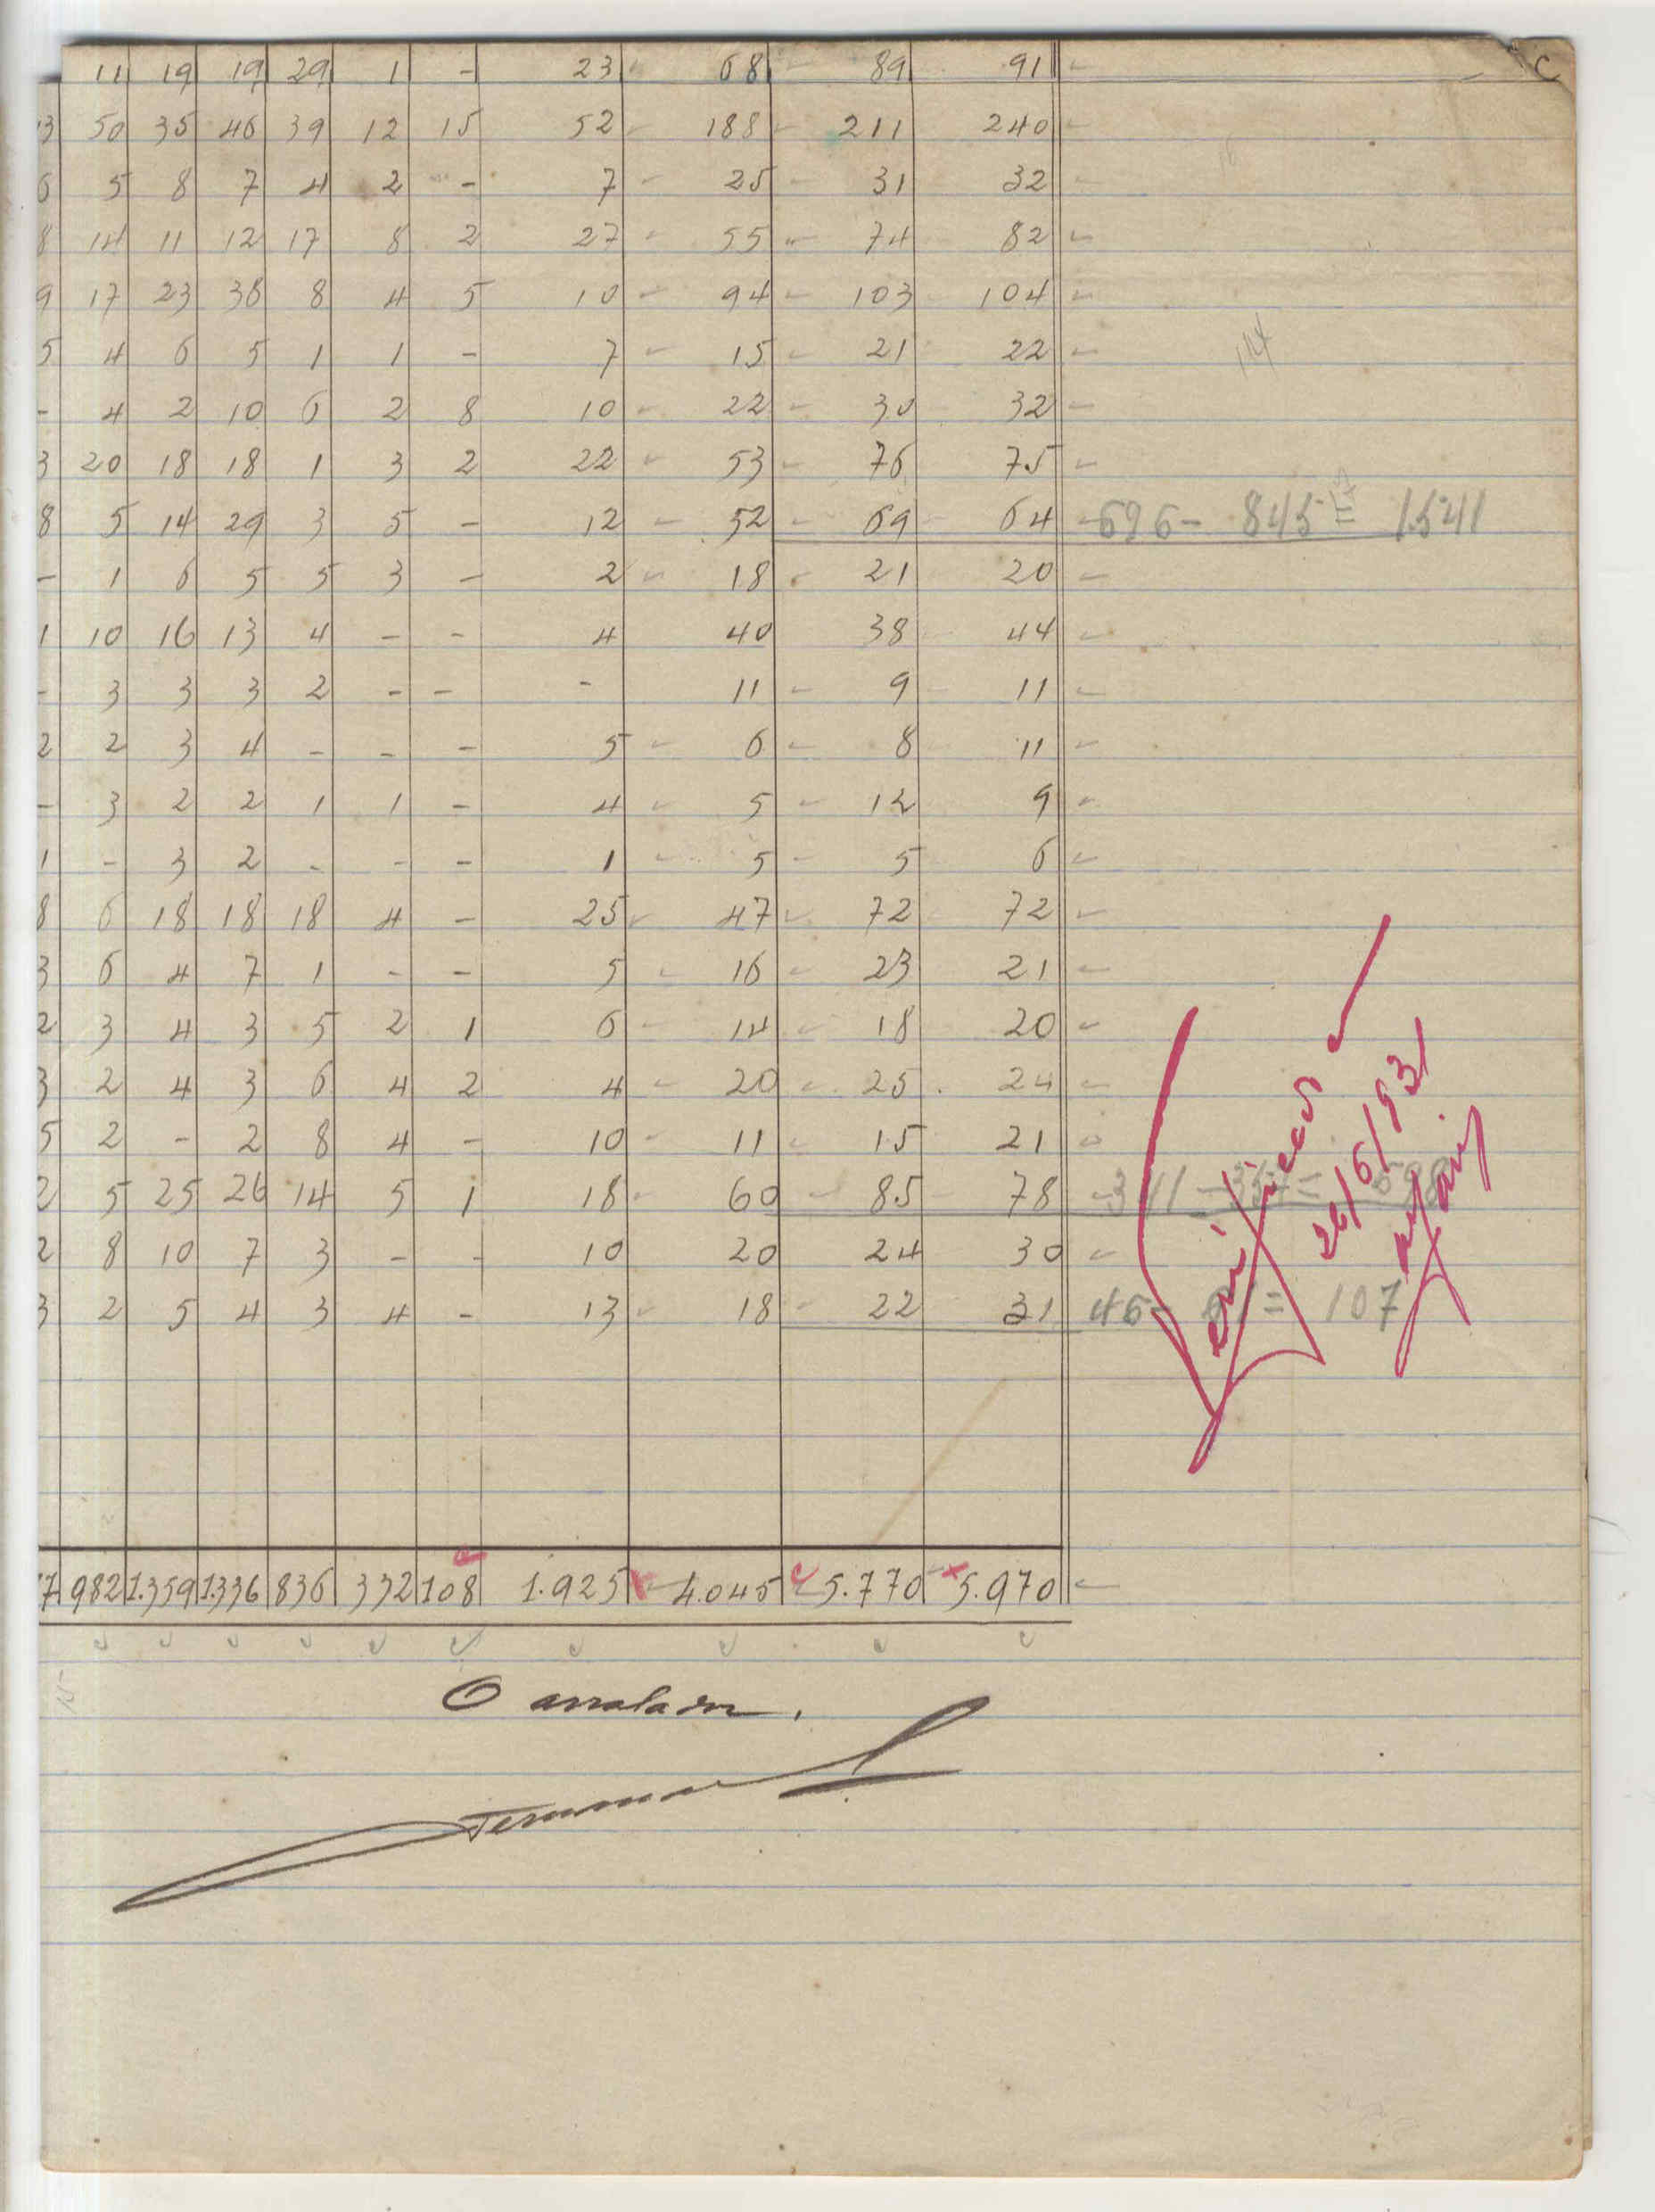 11 19 19 29 1 - 23 68 89 91 C
3 50 35 46 39 12 15 52 188 211 240
6 5 8 7 4 2 - 7 25 31 32
8 14 11 12 17 8 2 27 55 74 82
9 17 23 38 8 4 5 10 94 103 104
5 4 6 5 1 1 - 7 15 21 22
- 4 2 10 6 2 8 10 22 30 32
3 20 18 18 1 3 2 22 53 76 75
8 5 14 29 3 5 - 12 52 69 64 - 696 - 845 = 1.541
- 1 6 5 5 3 - 2 18 21 20
1 10 16 13 4 - - 4 40 38 44
- 3 3 3 2 - - - 11 9 11
2 2 3 4 - - - 5 6 8 11
- 3 2 2 1 1 - 4 5 12 9
1 - 3 2 - - - 1 5 5 6
8 6 18 18 18 4 - 25 47 72 72
3 6 4 7 1 - - 5 16 23 21
2 3 4 3 5 2 1 6 14 18 20
3 2 4 3 6 4 2 4 20 25 24
5 2 - 2 8 4 - 10 11 15 21
2 5 25 26 14 5 1 18 60 85 78 - 341 - 357 = 698
2 8 10 7 3 - - 10 20 24 30
3 2 5 4 3 4 - 13 18 22 31 46 - = 107
26/6/931
7 982 1.359 1.336 836 332 108 1.925 4.045 5.770 5.970
O